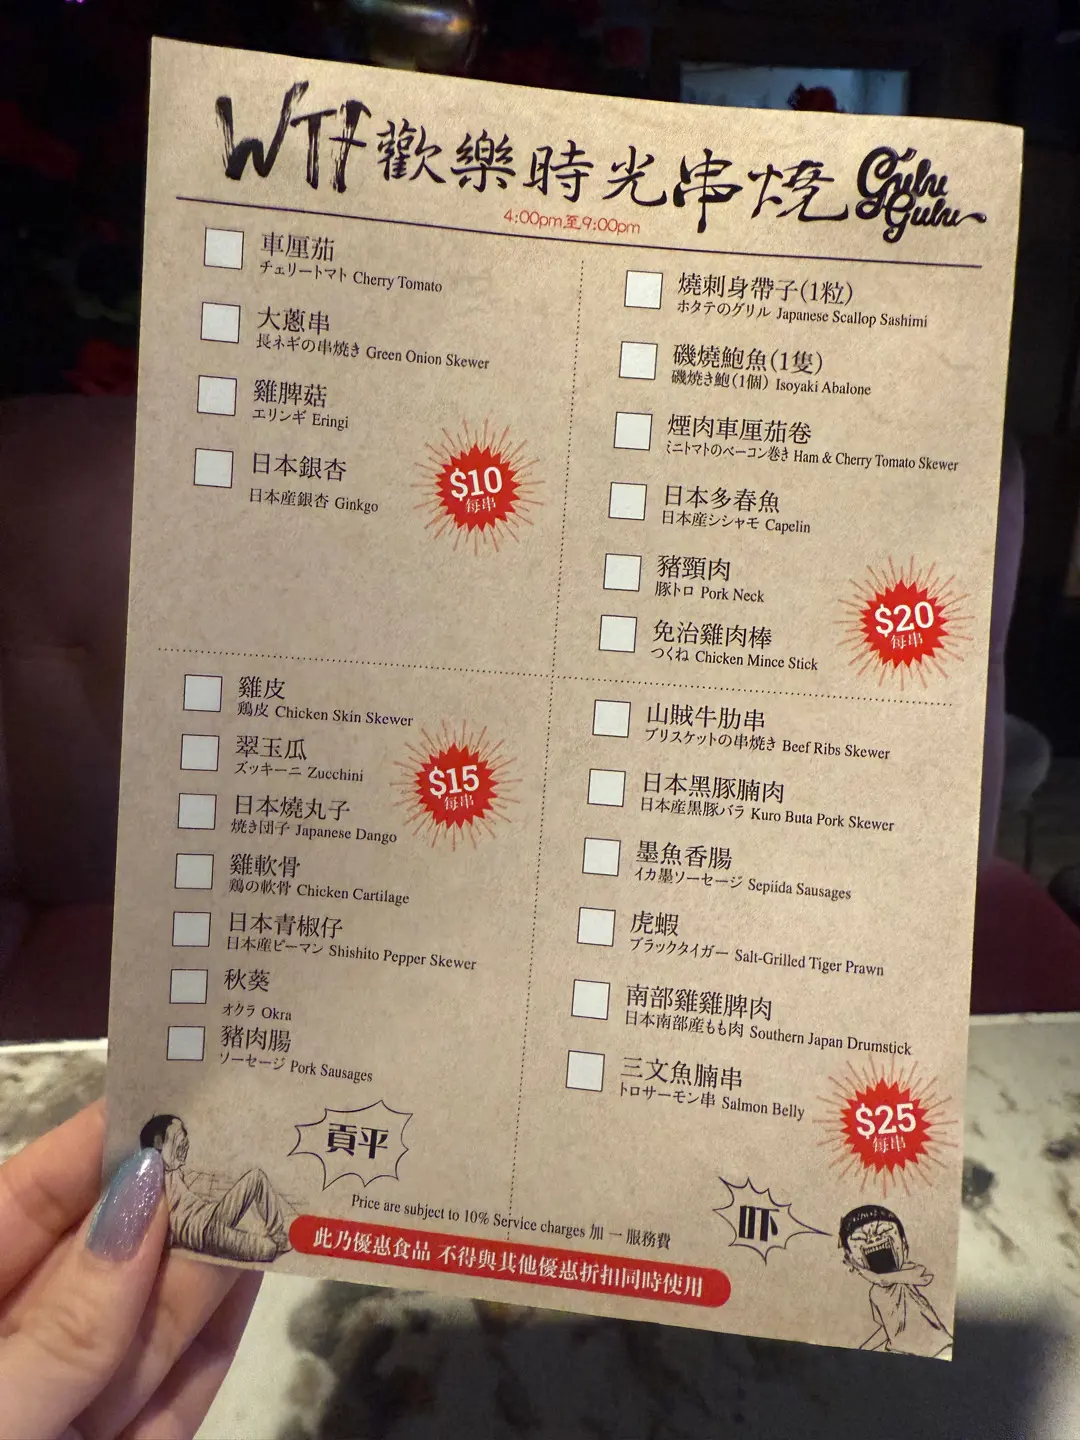 WTF歡樂時光串燒 Gulu Gulu
4:00pm至9:00pm
車厘茄
チェリートマト Cherry Tomato
大蔥串
長ネギの串焼き Green Onion Skewer
雞脾菇
エリンギ Eringi
日本銀杏
日本産銀杏 Ginkgo
$10
每串
燒刺身帶子(1粒)
ホタテのグリル Japanese Scallop Sashimi
磯燒鮑魚(1隻)
磯焼き鮑(1個) Isoyaki Abalone
煙肉車厘茄卷
ミニトマトのベーコン巻き Ham & Cherry Tomato Skewer
日本多春魚
日本産シシャモ Capelin
豬頸肉
豚トロ Pork Neck
免治雞肉棒
つくね Chicken Mince Stick
$20
每串
雞皮
鶏皮 Chicken Skin Skewer
翠玉瓜
ズッキーニ Zucchini
日本燒丸子
焼き団子 Japanese Dango
雞軟骨
鶏の軟骨 Chicken Cartilage
日本青椒仔
日本産ピーマン Shishito Pepper Skewer
秋葵
オクラ Okra
豬肉腸
ソーセージ Pork Sausages
$15
每串
山賊牛肋串
ブリスケットの串焼き Beef Ribs Skewer
日本黑豚腩肉
日本産黒豚バラ Kuro Buta Pork Skewer
墨魚香腸
イカ墨ソーセージ Sepiida Sausages
虎蝦
ブラックタイガー Salt-Grilled Tiger Prawn
南部雞雞脾肉
日本南部産もも肉 Southern Japan Drumstick
三文魚腩串
トロサーモン串 Salmon Belly
$25
每串
貢平
吓
Price are subject to 10% Service charges 加一服務費
此乃優惠食品 不得與其他優惠折扣同時使用